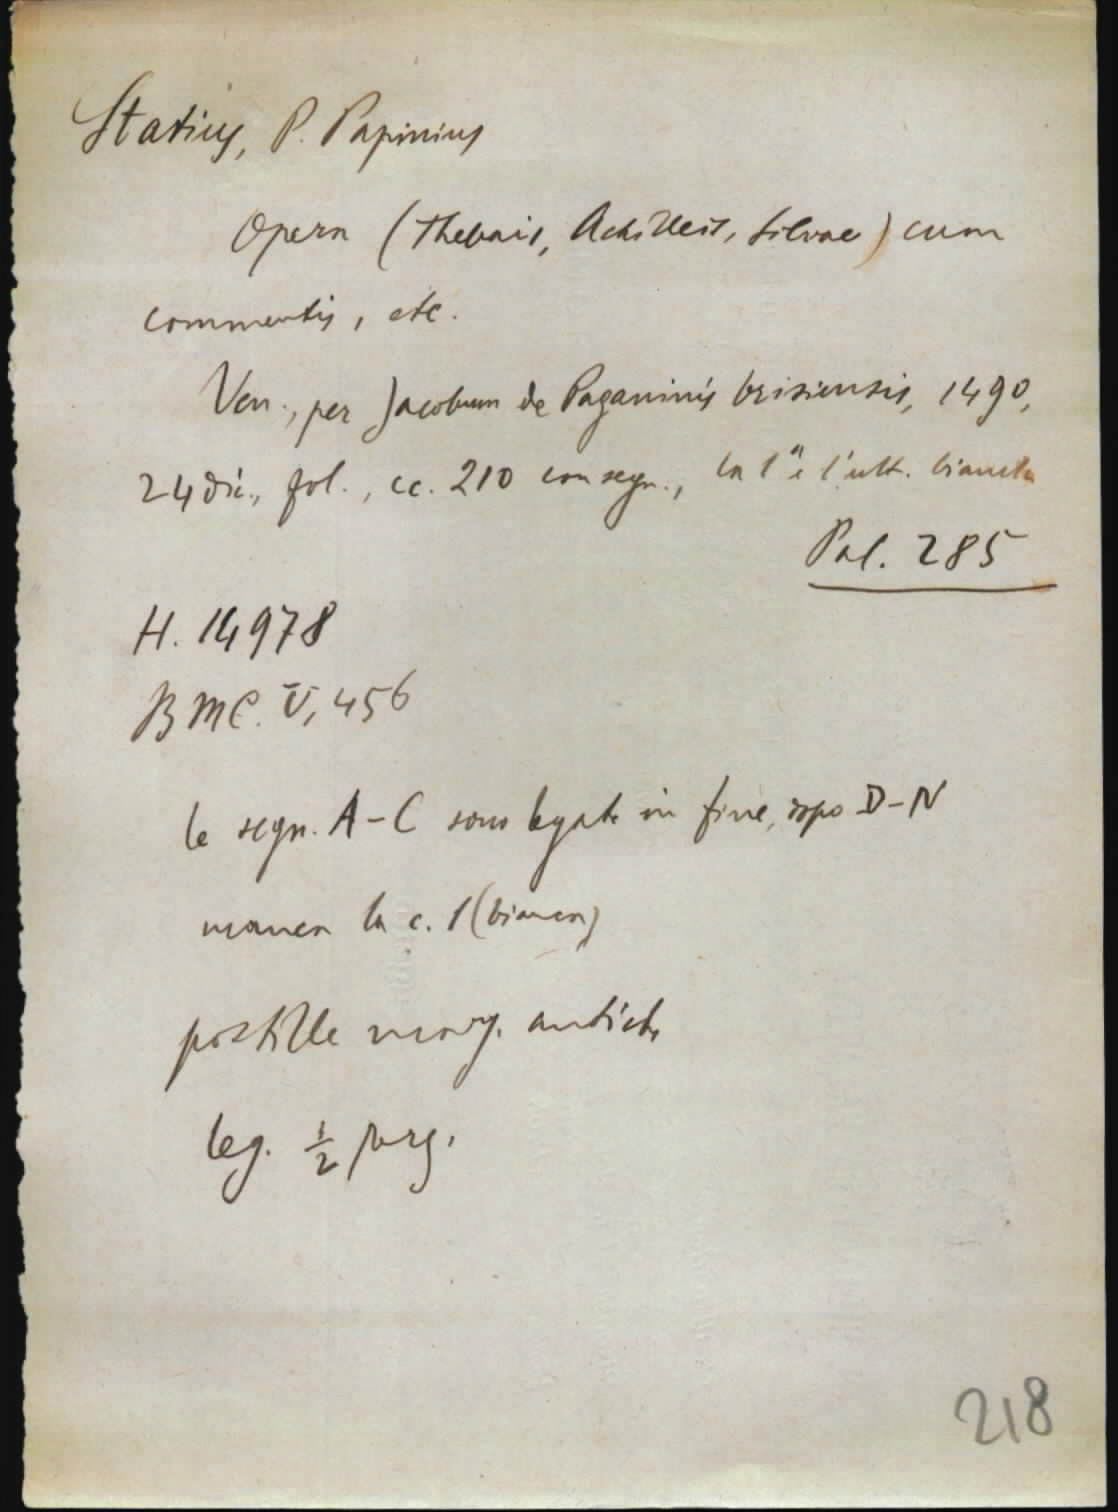 Statius, P. Papinius
Opera (Thebais, Achilleis, Silvae) cum
commentis, etc.
Ven., per Jacobum de Paganinis brixiensis, 1490,
24 dic., fol., cc. 210 con segn., la 1ª e l'ult. bianche
Pal. 285
H. 14978
BMC. V, 456
le segn. A-C sono legate in fine, dopo D-N
manca la c. 1 (bianca)
postille marg. antiche
leg. ½ perg.
218